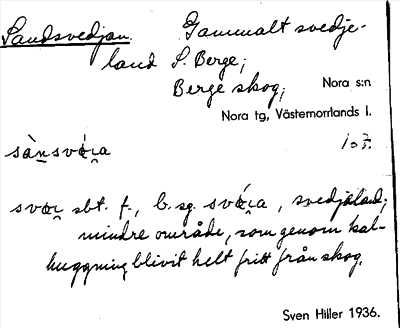 Sandsvedjan. Gammalt svedje-
land S. Berge;
Berge skog; Nora s:n
Nora tg, Västernorrlands l.
sàn̠svǽɩ̯a
svæɩ̯ sbt. f., b. sg. svǽɩ̯a, svedjeland;
mindre område, som genom kal-
huggning blivit helt fritt från skog.
Sven Hiller 1936.